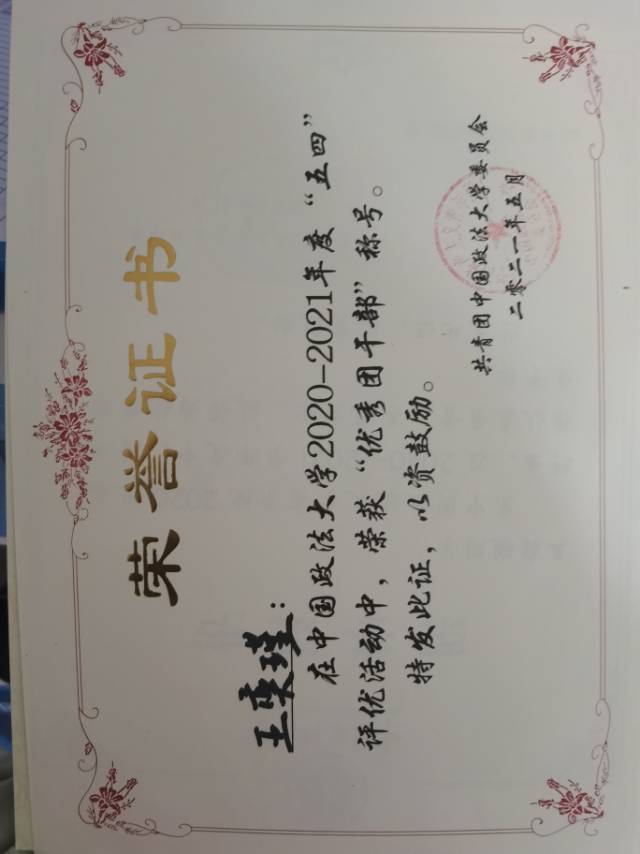 荣誉证书
王奕瑾：
在中国政法大学2020-2021年度“五四”
评优活动中，荣获“优秀团干部”称号。
特发此证，以资鼓励。
共青团中国政法大学委员会
二零二一年五月